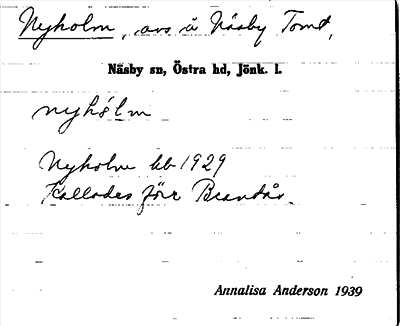 Nyholm, avs å Näsby Tomt,
Näsby sn, Östra hd, Jönk. l.
nyhólm
Nyholm kb 1929
Kallades förr
Annalisa Anderson 1939